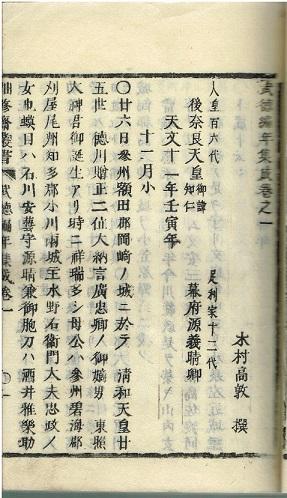 武德編年集成卷之一
木村高敦 撰
人皇百六代 足利家十三代
後奈良天皇 御諱知仁 幕府源義晴卿
天文十一年壬寅年
十二月小
〇廿六日參州額田郡岡崎ノ城ニ於テ 清和天皇廿
五世 德川贈正二位大納言廣忠卿ノ御嫡男 東照
大神君御誕生アリ時ニ祥瑞多シ母公ハ參州碧海郡
刈屋尾州知多郡小川両城主水野右衛門大夫忠政ノ
女也蟇目ハ石川安藝守源晴兼御胞刀ハ酒井雅樂助
武德編年集成 卷一